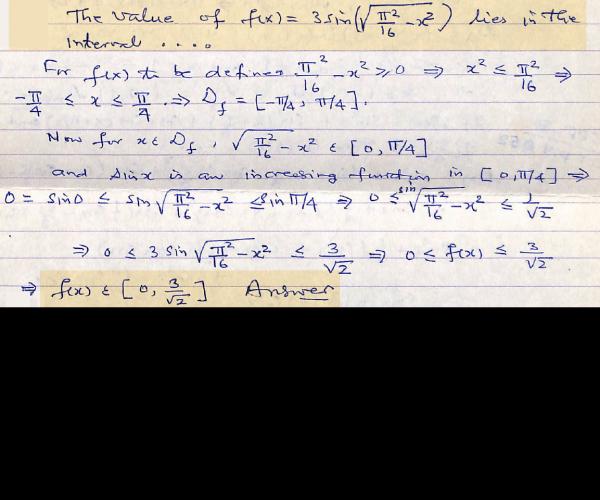 The value of f(x) = 3 sin(√(π²/16 - x²)) lies in the
interval ....
For f(x) to be defined π²/16 - x² ≥ 0 ⇒ x² ≤ π²/16 ⇒
-π/4 ≤ x ≤ π/4. ⇒ D_f = [-π/4, π/4].
Now for x ∈ D_f, √(π²/16 - x²) ∈ [0, π/4]
and sin x is an increasing function in [0, π/4] ⇒
0 = sin 0 ≤ sin √(π²/16 - x²) ≤ sin π/4 ⇒ 0 ≤ sin √(π²/16 - x²) ≤ 1/√2
⇒ 0 ≤ 3 sin √(π²/16 - x²) ≤ 3/√2 ⇒ 0 ≤ f(x) ≤ 3/√2
⇒ f(x) ∈ [0, 3/√2] Answer